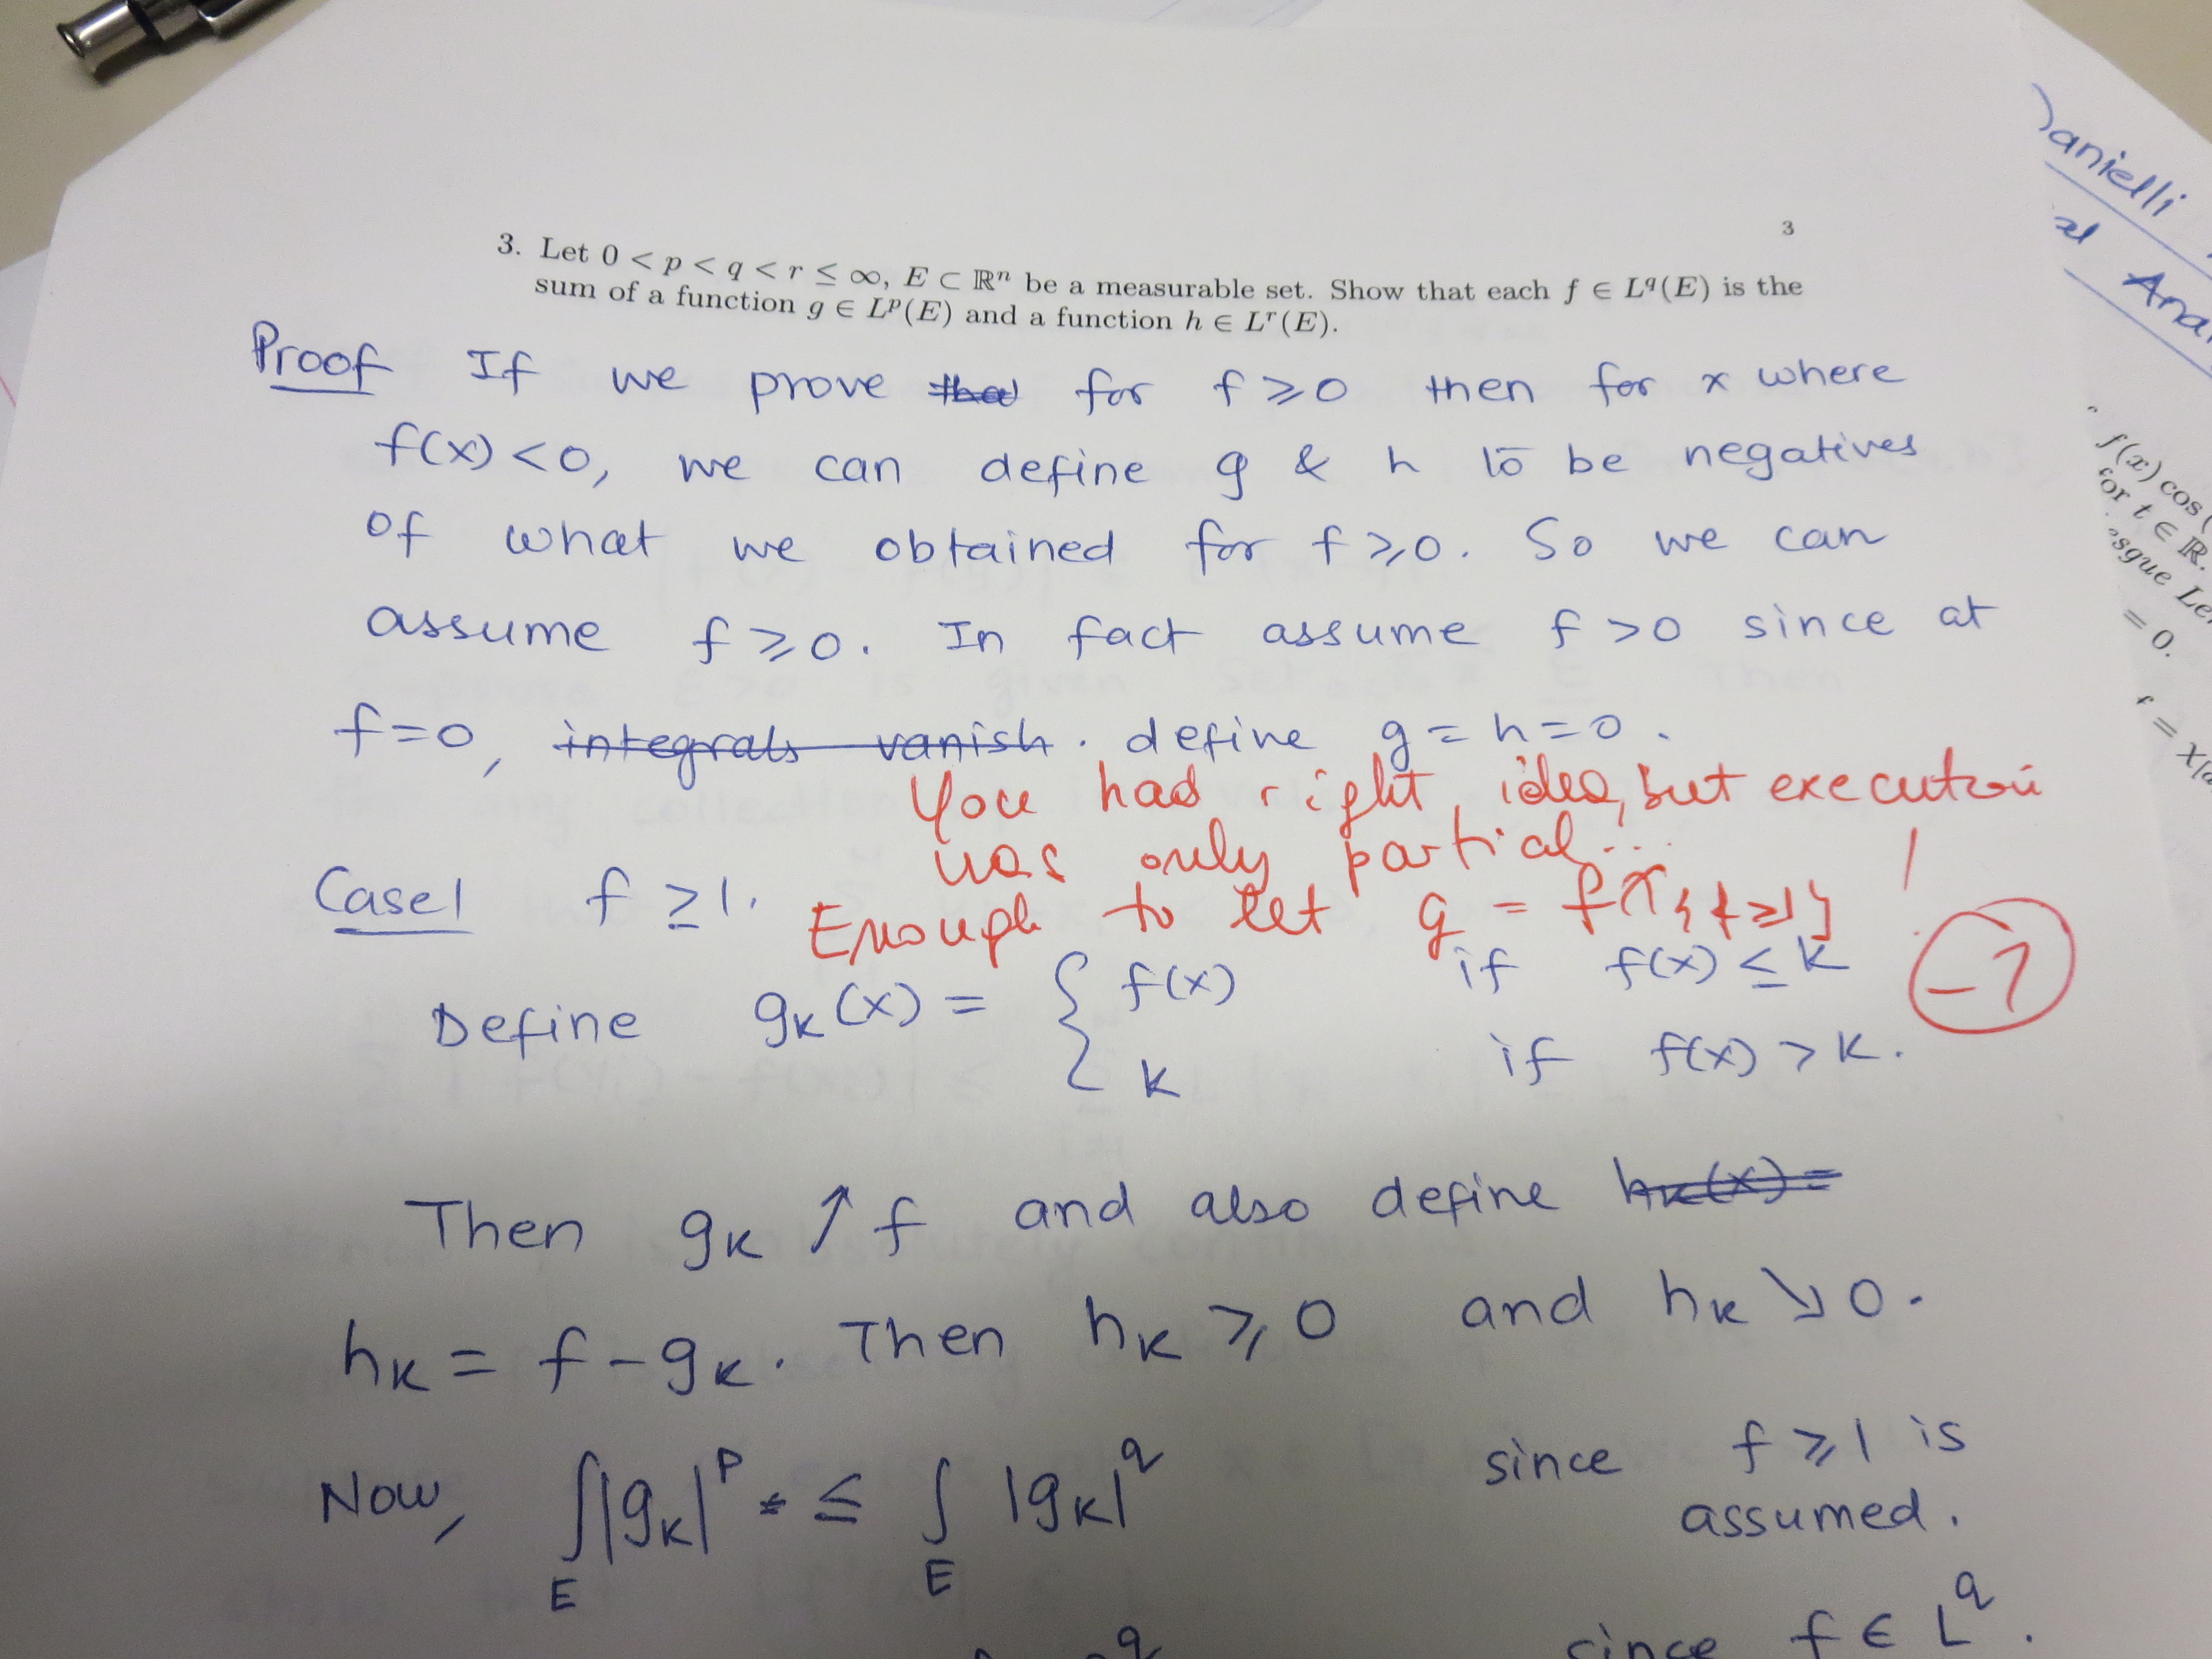 3
3. Let 0 < p < q < r ≤ ∞, E ⊂ ℝⁿ be a measurable set. Show that each f ∈ L^q(E) is the
sum of a function g ∈ L^p(E) and a function h ∈ L^r(E).
Proof If we prove for f ≥ 0 then for x where
f(x) < 0, we can define g & h to be negatives
of what we obtained for f ≥ 0. So we can
assume f ≥ 0. In fact assume f > 0 since at
f = 0, integrals vanish. define g = h = 0.
You had right idea, but execution
was only partial.
Case 1 f ≥ 1.
Enough to let g = f χ{f ≥ 1}
Define g_k(x) = { f(x) if f(x) ≤ k
k if f(x) > k.
-7
Then g_k ↗ f and also define h_k(x) =
h_k = f - g_k. Then h_k ≥ 0 and h_k ↘ 0.
Now, ∫_E |g_k|^p ≤ ∫_E |g_k|^q since f ≥ 1 is
assumed.
since f ∈ L^q.
f(x) cos
for t ∈ ℝ.
= 0.